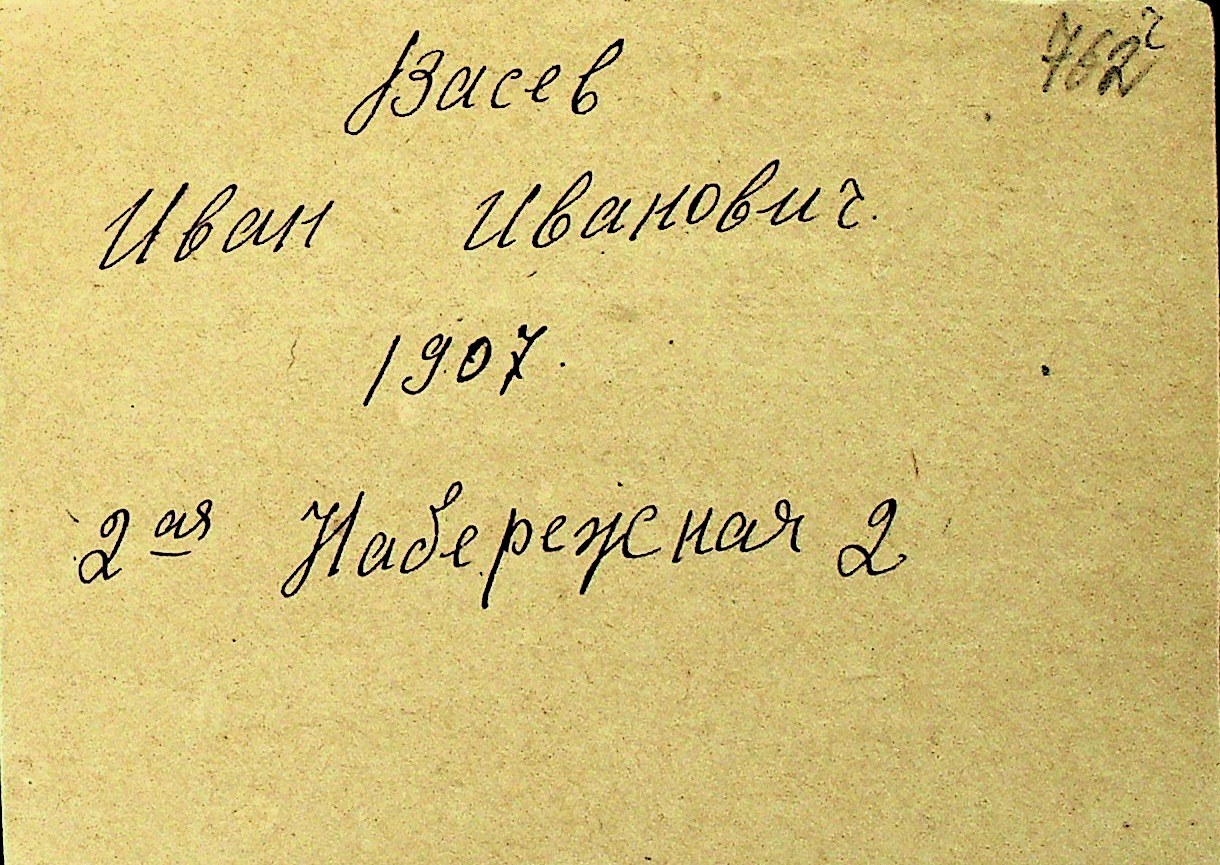 762
Васев
Иван Иванович.
1907.
2ая Набережная 2